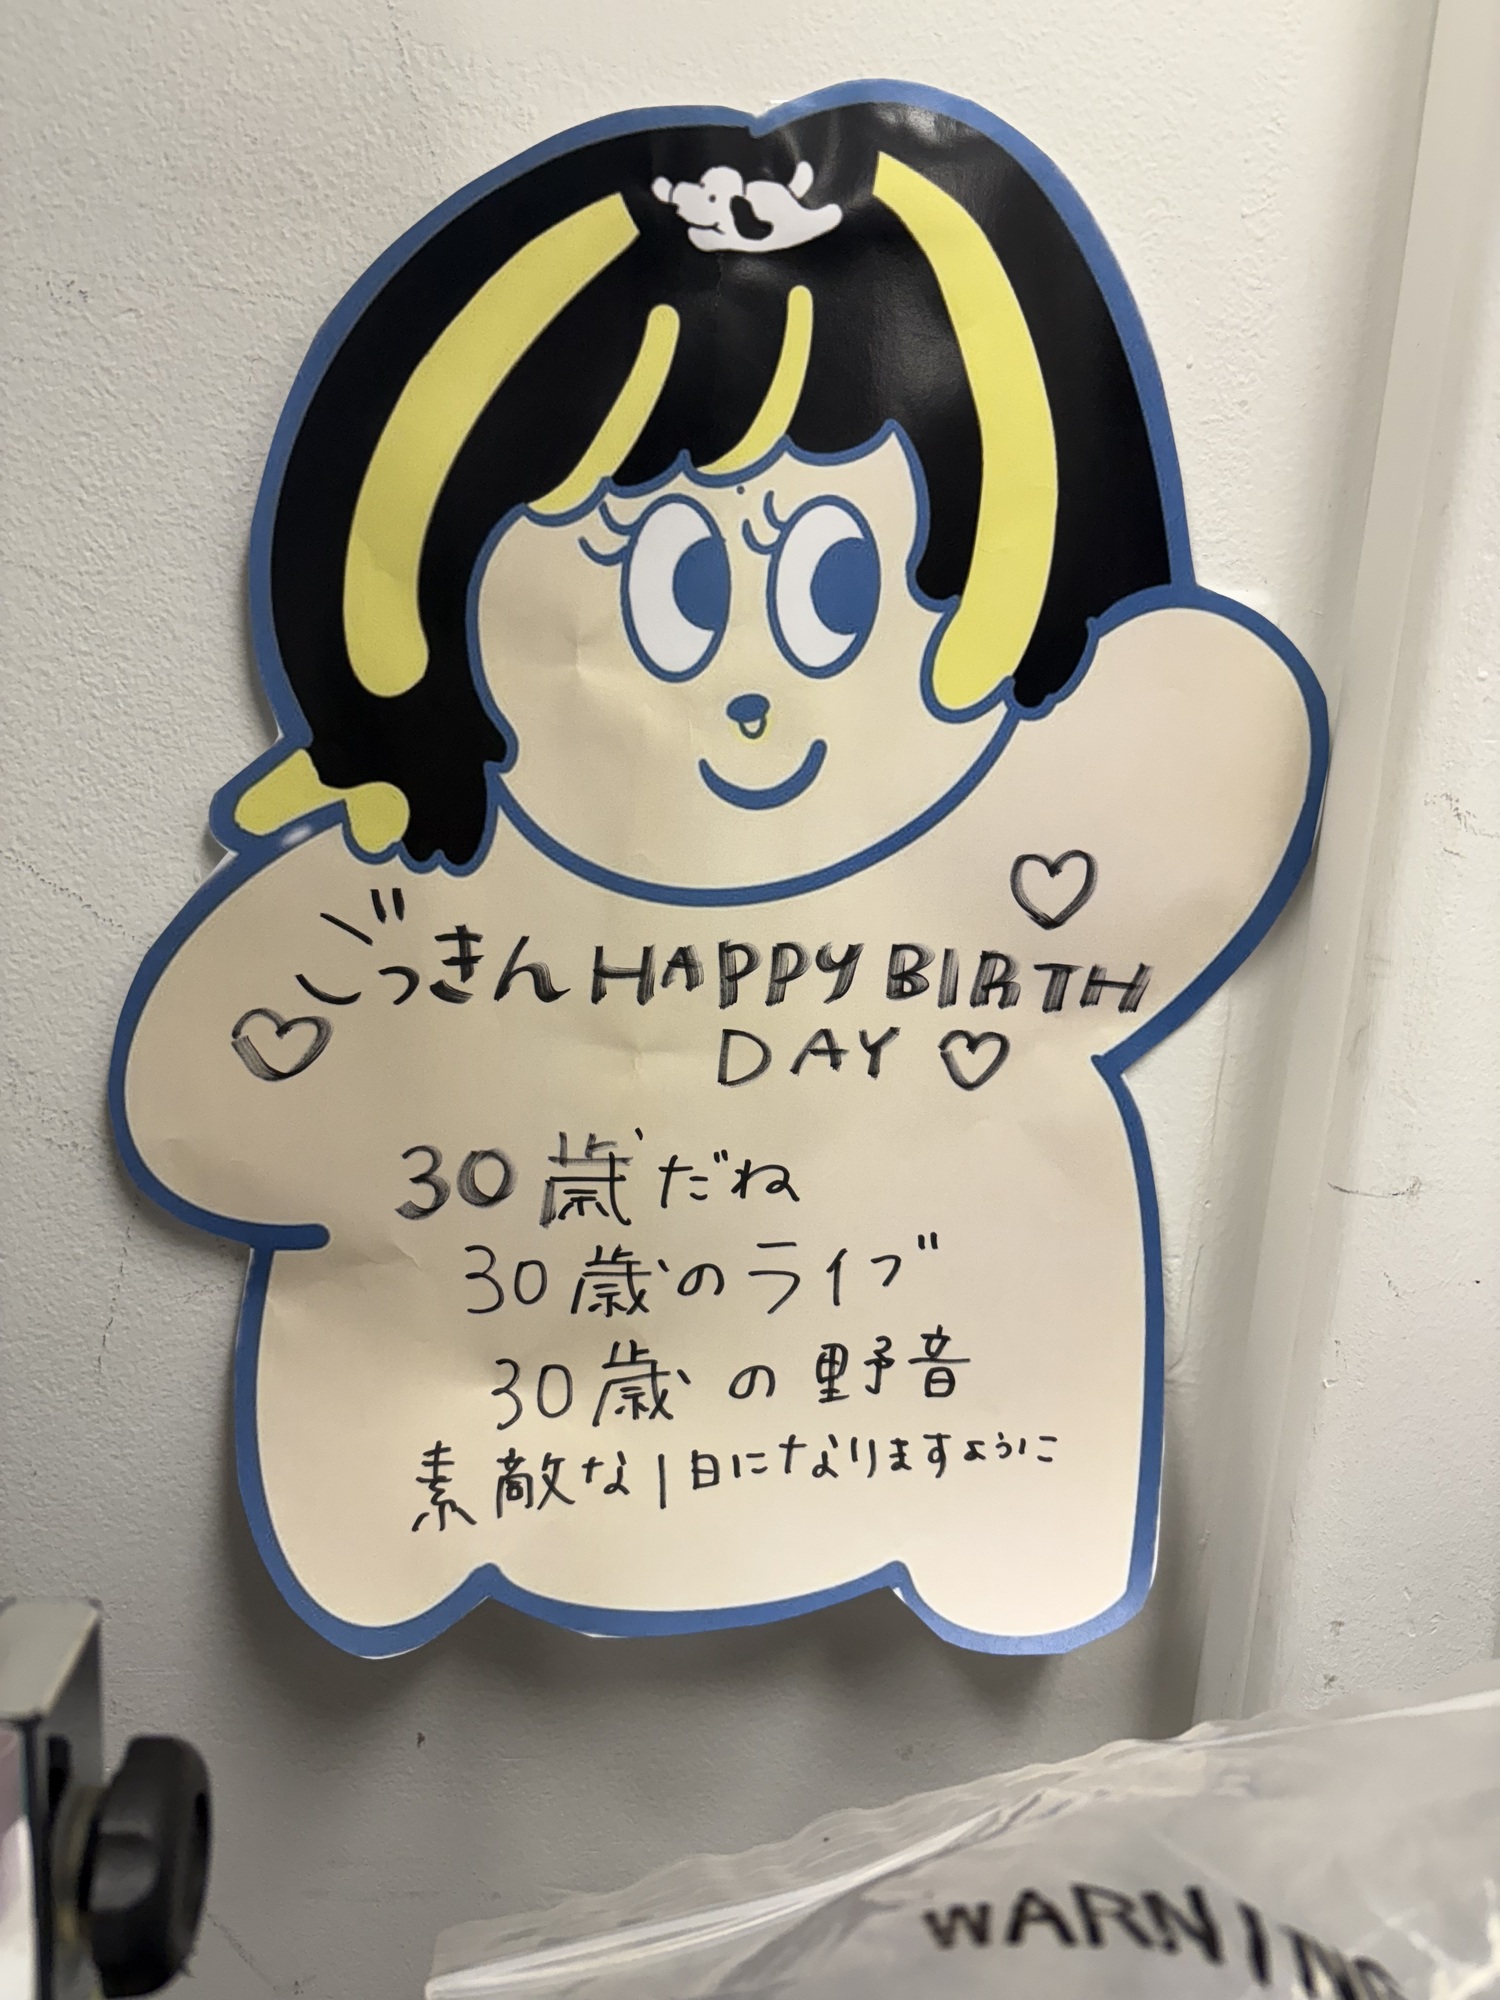 ごっきん HAPPY BIRTH
DAY
30歳だね
30歳のライブ
30歳の野音
素敵な1日になりますように
WARNING